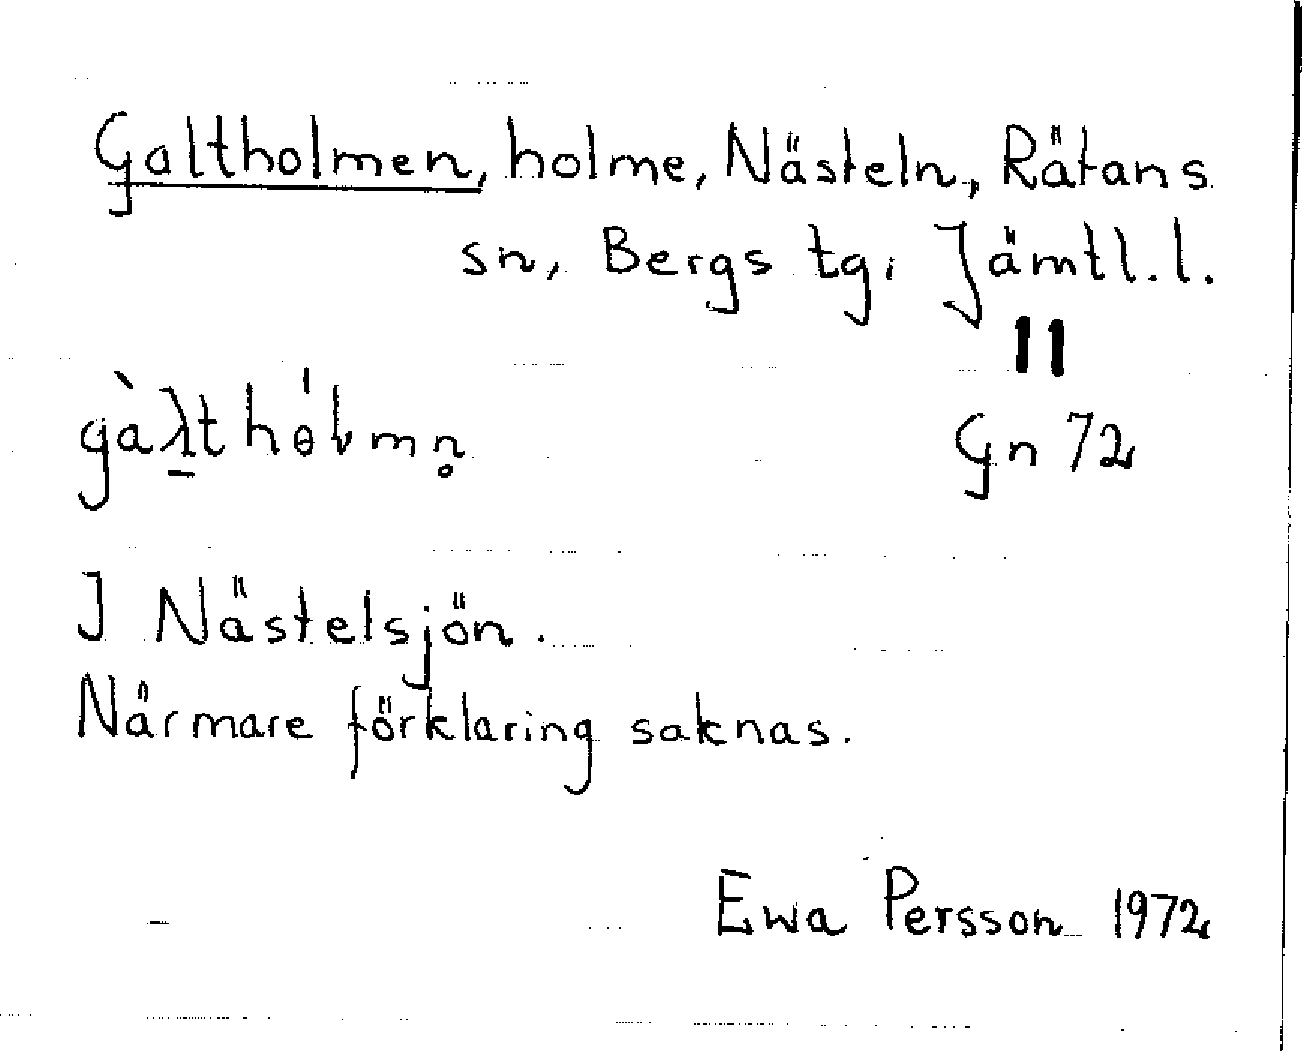 Galtholmen, holme, Nästeln, Rätans
sn, Bergs tg, Jämtl. l.
11
gàλ̱thɵ́lmn̥
Gn 72
I Nästelsjön.
Närmare förklaring saknas.
Ewa Persson 1972